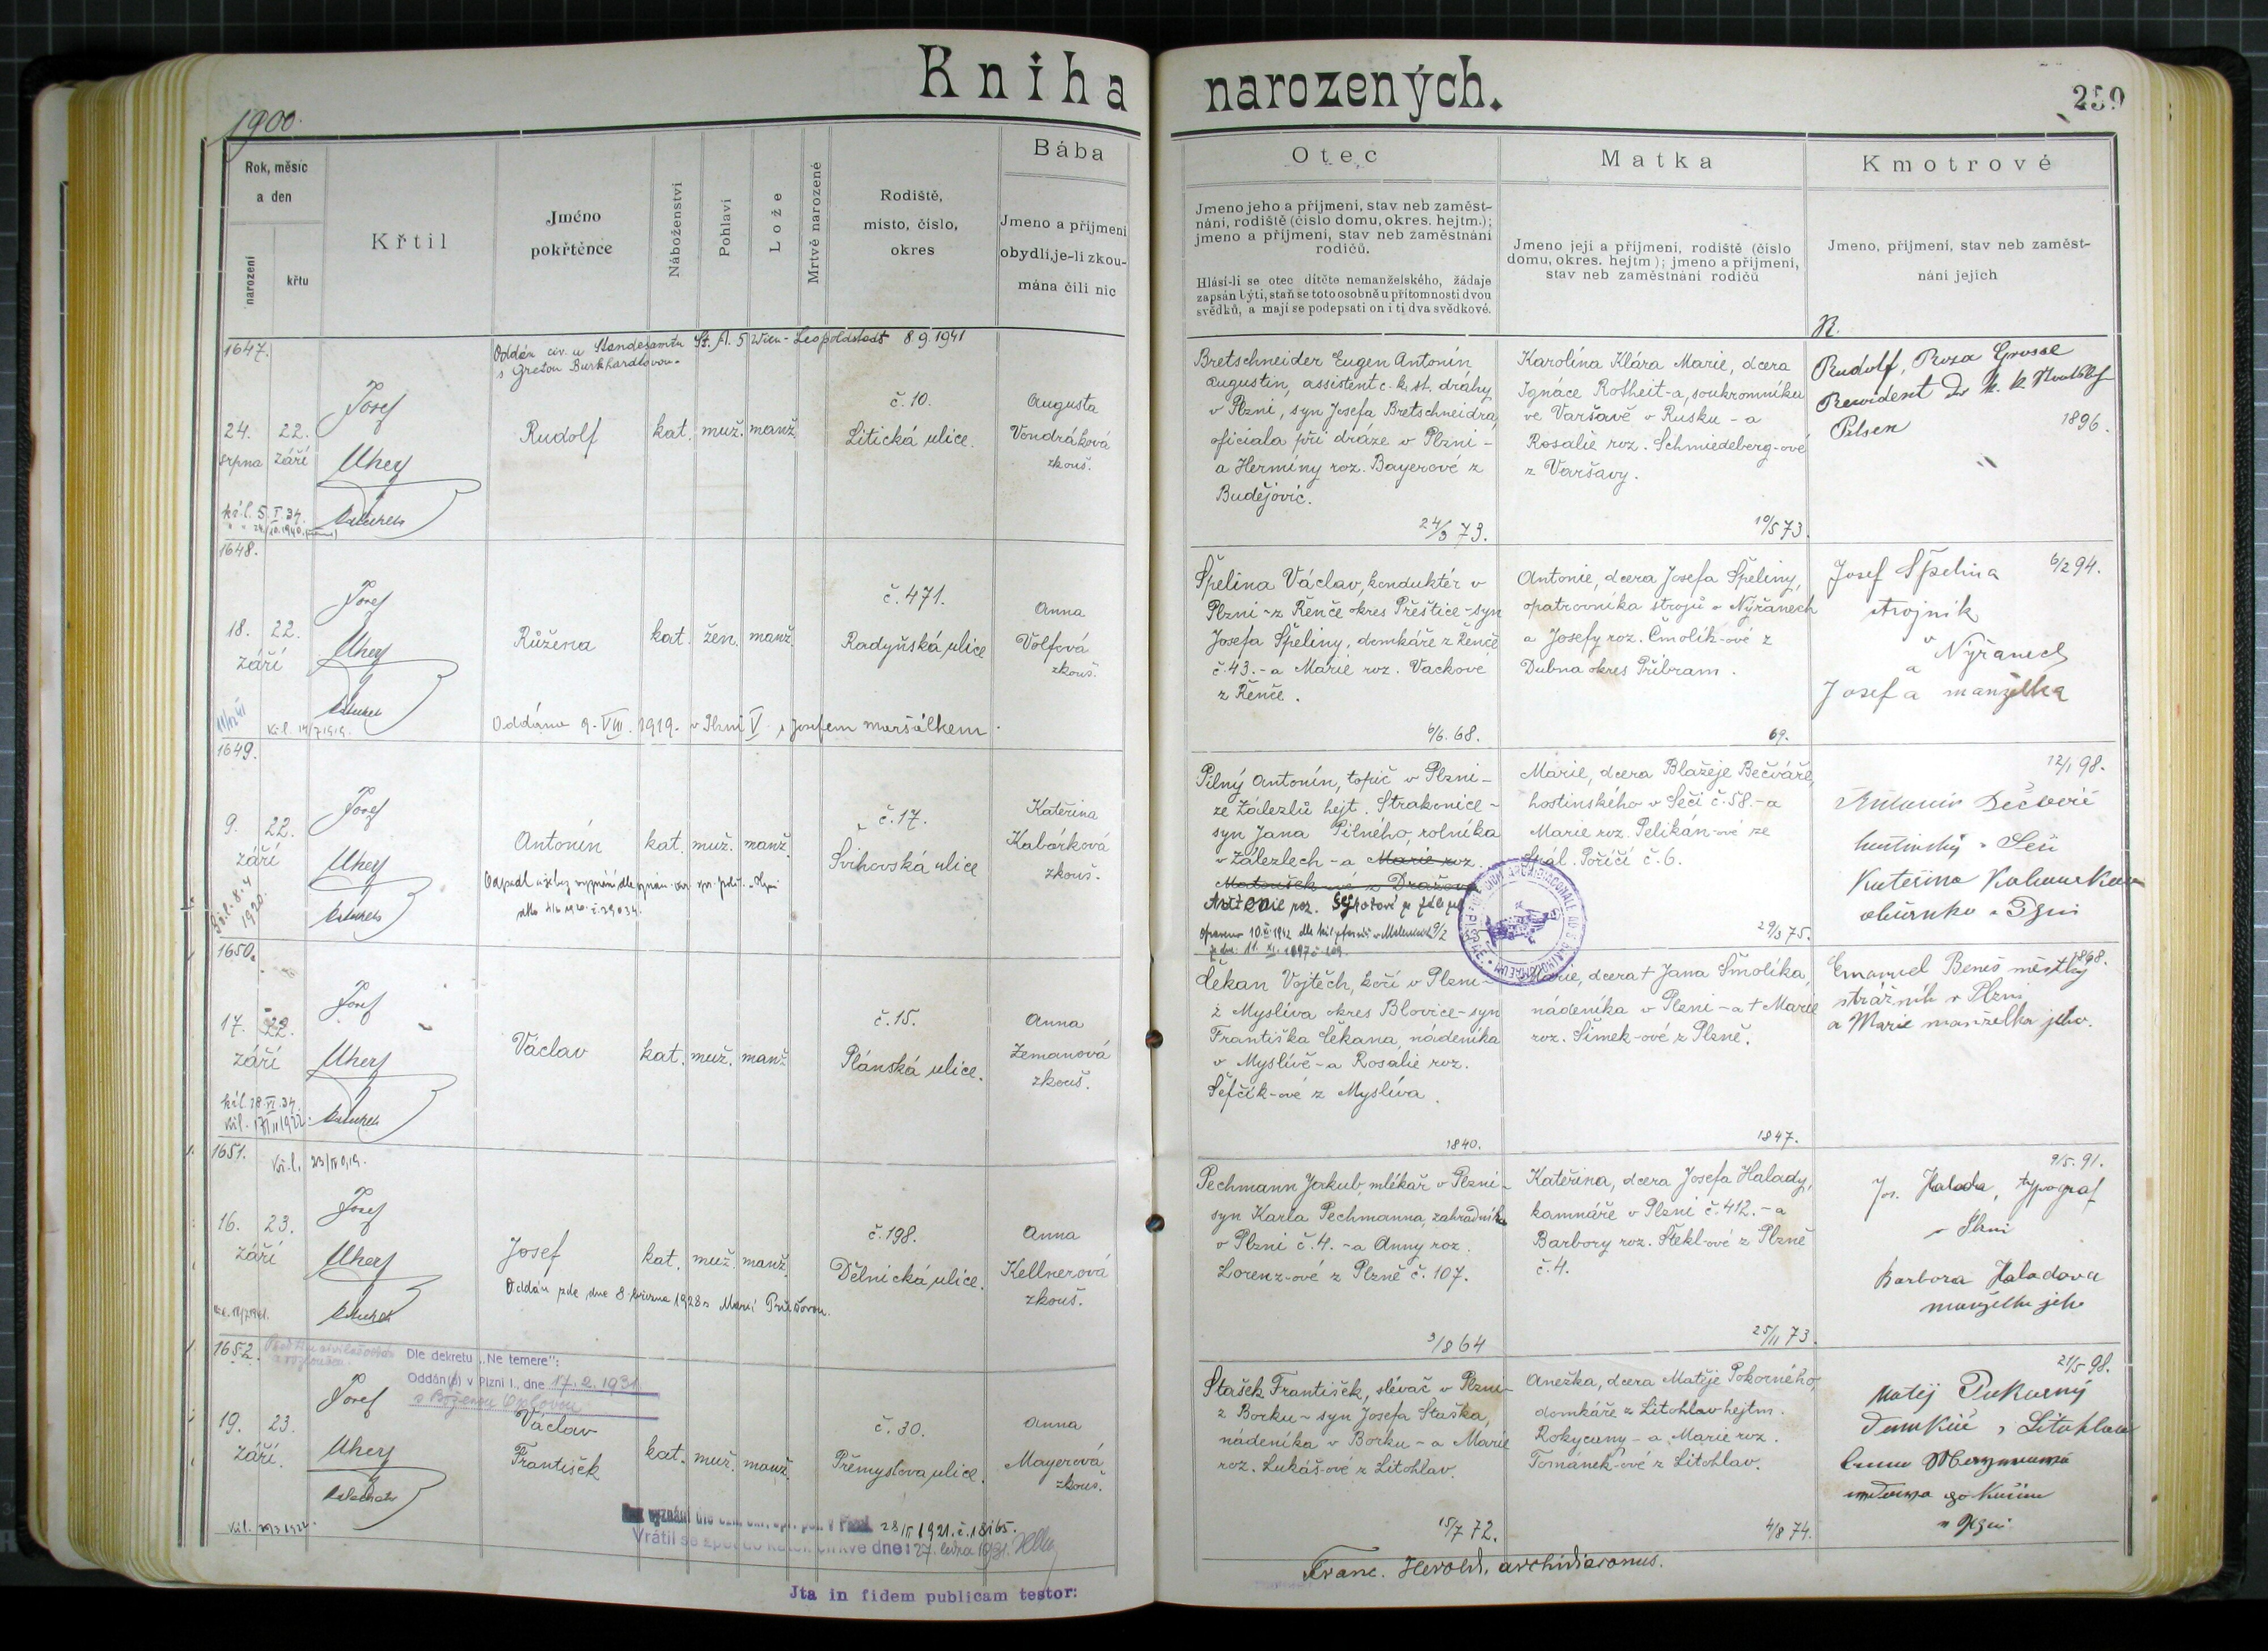 Kniha narozených.
259
1900.
Rok, měsíc
a den
narození
křtu
Křtil
Jméno
pokřtěnce
Náboženství
Pohlaví
Lože
Mrtvě narozené
Rodiště,
místo, číslo,
okres
Bába
Jmeno a přijmení
obydlí, je-li zkou-
mána čili nic
Otec
Jmeno jeho a přijmení, stav neb zaměst-
nání, rodiště (číslo domu, okres. hejtm.);
jmeno a přijmení, stav neb zaměstnání
rodičů.
Hlásí-li se otec dítěte nemanželského, žádaje
zapsán býti, staň se toto osobně u přítomnosti dvou
svědků, a mají se podepsati on i ti dva svědkové.
Matka
Jmeno její a přijmení, rodiště (číslo
domu, okres. hejtm); jmeno a přijmení,
stav neb zaměstnání rodičů
Kmotrové
Jmeno, přijmení, stav neb zaměst-
nání jejich
1647.
Oddán civ. u Standesamtu St. A. 5 Wien-Leopoldstadt 8.9.1941
s Gretou Burkhardtovou.
24. 22.
srpna září
Josef
Uherj
Rudolf
kat. muž. manž.
č. 10.
Litická ulice.
Augusta
Vondráková
zkouš.
Bretschneider Eugen Antonín
Augustin, assistent c. k. st. dráhy
v Plzni, syn Josefa Bretschneidra,
oficiala při dráze v Plzni -
a Hermíny roz. Bayerové z
Budějovic.
24/3 73.
Karolína Klára Marie, dcera
Ignáce Rotheit-a, soukromníka
ve Varšavě v Rusku - a
Rosalie roz. Schmiedeberg-ové
z Varšavy.
10/5 73.
Rudolf, Roza Grosse
Revident der k. k. Staatsbf
Pilsen
1896.
kř. l. 5. I. 34.
1648.
18. 22.
září
Josef
Uherj
Růžena
kat. žen. manž.
č. 471.
Radyňská ulice
Anna
Volfová
zkouš.
Oddána 9. VIII. 1919. v Plzni V s Josefem Maršálkem.
Kř. l. 14/7 1919.
Špelina Václav, konduktér v
Plzni - z Řenče okres Přeštice - syn
Josefa Špeliny, domkáře z Řenče
č. 43. - a Marie roz. Vackové
z Řenče.
6/6. 68.
Antonie, dcera Josefa Špeliny,
opatrovníka strojů v Nýřanech
a Josefy roz. Čmolík-ové z
Dubna okres Příbram.
69.
Josef Špelina 6/2 94.
strojník
v
Nýřanech
a
Josefa manželka
1649.
9. 22.
září
Josef
Uherj
Antonín
kat. muž. manž.
č. 17.
Švihovská ulice
Kateřina
Kabárková
zkouš.
Kř. l. 8. 4
1920.
Pilný Antonín, topič v Plzni -
ze Zálezlů hejt. Strakonice -
syn Jana Pilného, rolníka
v Zálezlech - a Marie roz.
Matoušek-ové z Dražova
Marie, dcera Blažeje Bečváře,
hostinského v Seči č. 58. - a
Marie roz. Pelikán-ové ze
Spál. Poříčí č. 6.
29/3 75.
12/1 98.
1650.
17. 22.
září
Josef
Uherj
Václav
kat. muž. manž.
č. 15.
Plánská ulice.
Anna
Zemanová
zkouš.
kř. l. 18. VI. 34.
Čekan Vojtěch, kočí v Plzni -
z Myslíva okres Blovice - syn
Františka Čekana, nádeníka
v Myslívě - a Rosalie roz.
Šefčík-ové z Myslíva.
1840.
Marie, dcera † Jana Šmolíka,
nádeníka v Plzni - a † Marie
roz. Šimek-ové z Plzně.
1847.
1868.
Emanuel Beneš městký
strážník v Plzni
a Marie manželka jeho.
1651.
16. 23.
září
Josef
Uherj
Josef
kat. muž. manž.
č. 198.
Dělnická ulice.
Anna
Kellnerová
zkouš.
Oddán zde dne 8 března 1928 s Marií
Pechmann Jakub, mlékař v Plzni -
syn Karla Pechmanna, zahradníka
v Plzni č. 4. - a Anny roz.
Lorenz-ové z Plzně č. 107.
3/8 64
Kateřina, dcera Josefa Halady,
kamnáře v Plzni č. 412. - a
Barbory roz. Štekl-ové z Plzně
č. 4.
25/11 73.
9/5. 91.
Jos. Halada, typograf
v Plzni
Barbora Haladova
manželka jeho
1652.
Dle dekretu „Ne temere":
Oddán(a) v Plzni I., dne 17. 2. 1931
19. 23.
září.
Josef
Uherj
Václav
František
kat. muž. manž.
č. 30.
Přemyslova ulice.
Anna
Mayerová
zkouš.
28/II 1921. č. 18165.
Vrátil se zpět do katol. církve dne 27. ledna 1931.
Stašek František, slévač v Plzni -
z Borku - syn Josefa Staška,
nádeníka v Borku - a Marie
roz. Lukáš-ové z Litohlav.
15/7 72.
Anežka, dcera Matěje Pokorného,
domkáře z Litohlav hejtm.
Rokycany - a Marie roz.
Tománek-ové z Litohlav.
4/8 74.
21/5 98.
Matěj Pokorný
Franc. Herold, archidiaconus.
Jta in fidem publicam testor: